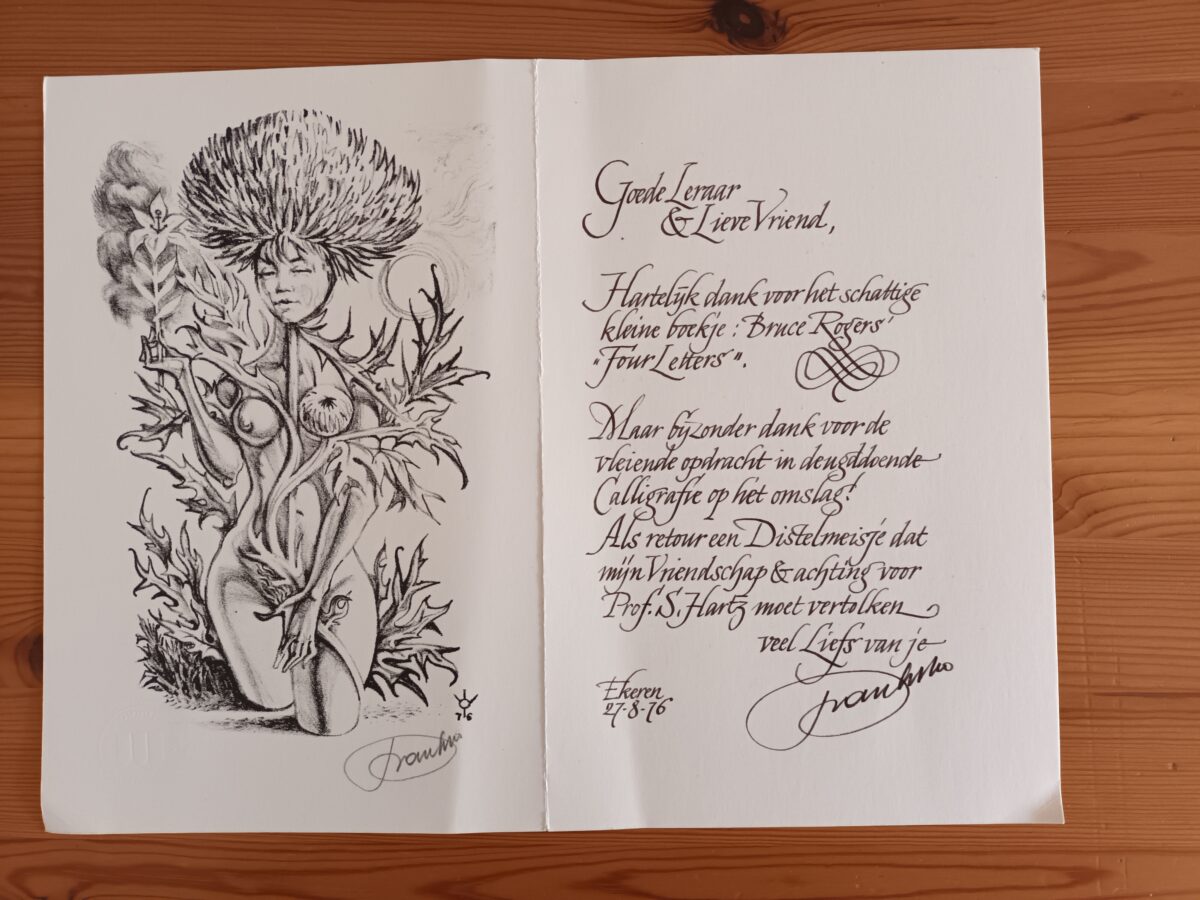 76
Goede Leraar
& Lieve Vriend,
Hartelijk dank voor het schattige
kleine boekje : Bruce Rogers'
"Four Letters".
Maar bijzonder dank voor de
vleiende opdracht in deugddoende
Calligrafie op het omslag!
Als retour een Distelmeisje dat
mijn Vriendschap & achting voor
Prof. S. Hartz moet vertolken
veel Liefs van je
Ekeren
27-8-76